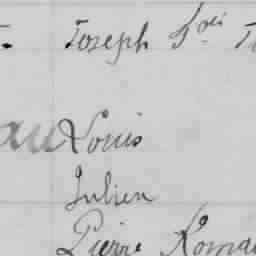 Joseph
au Louis
Julien
Pierre Romai